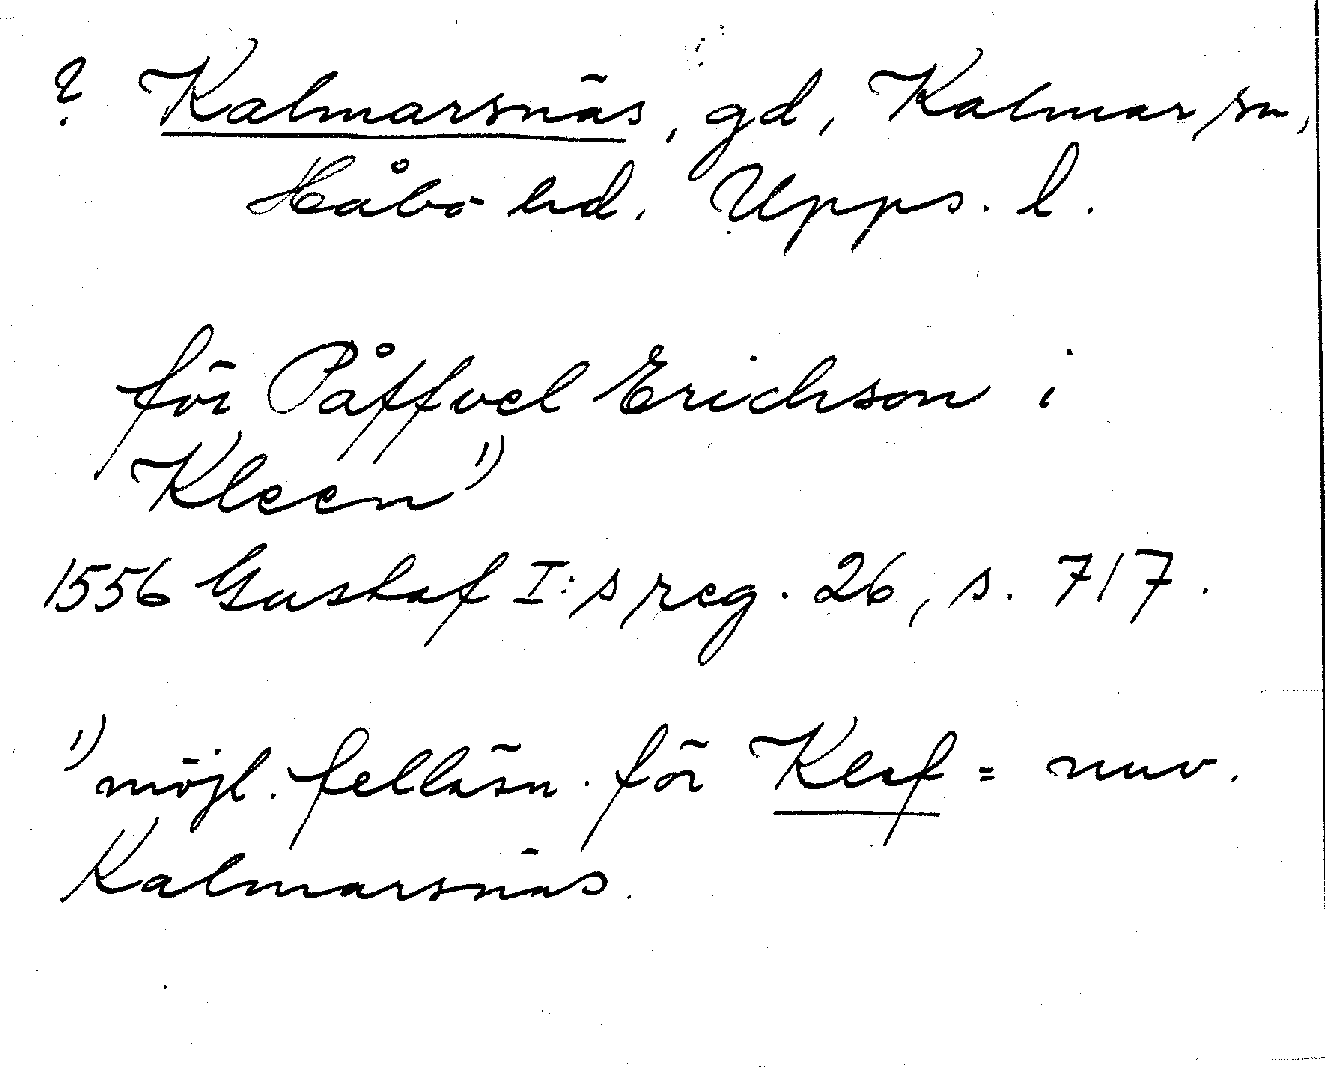 ? Kalmarsnäs, gd, Kalmar sn,
Håbo hd. Upps. l.
för Påffvel Erichson i
Kleen 1)
1556 Gustaf I:s reg. 26, s. 717.
1) möjl. felläsn. för Klef = nuv.
Kalmarsnäs.